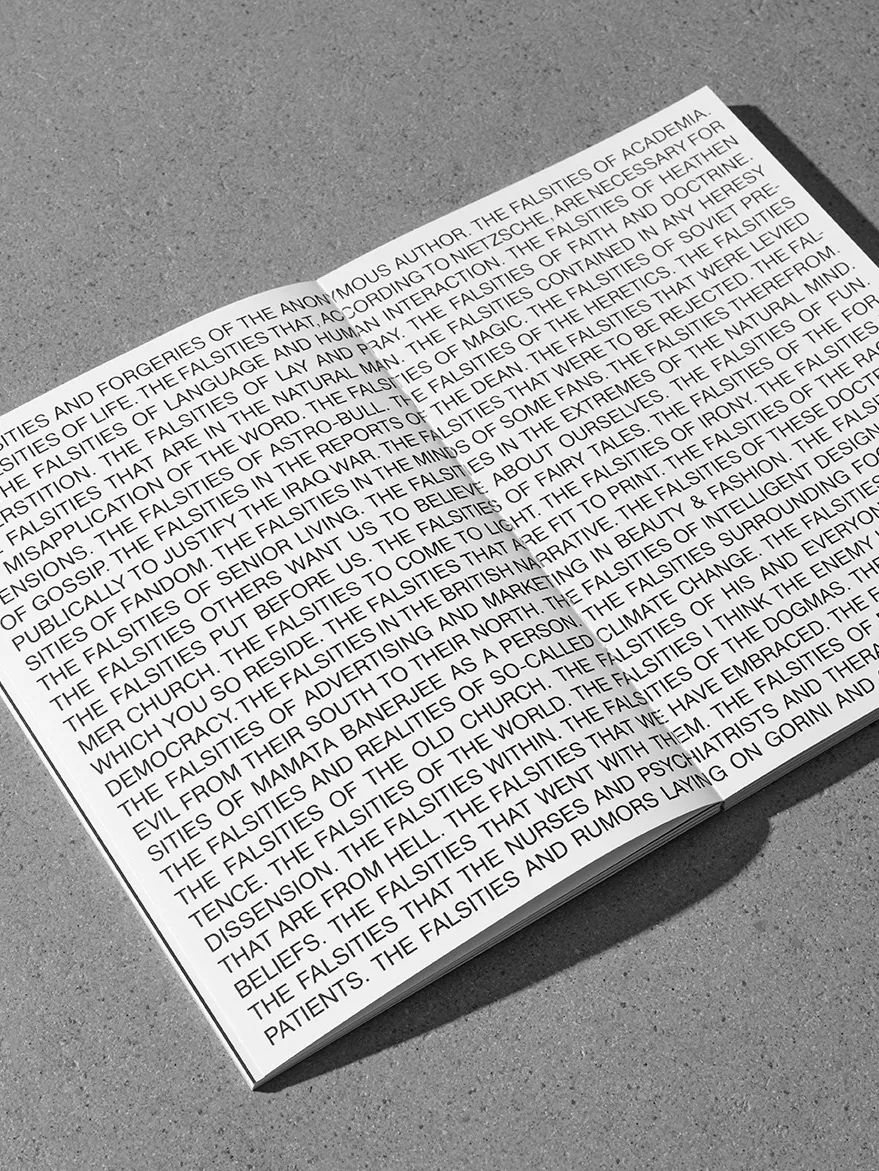 SITIES AND FORGERIES OF THE ANONYMOUS AUTHOR. THE FALSITIES OF ACADEMIA.
SITIES OF LIFE. THE FALSITIES THAT, ACCORDING TO NIETZSCHE, ARE NECESSARY FOR
HE FALSITIES OF LANGUAGE AND HUMAN INTERACTION. THE FALSITIES OF HEATHEN
ERSTITION. THE FALSITIES OF LAY AND DRAY. THE FALSITIES OF FAITH AND DOCTRINE.
FALSITIES THAT ARE IN THE NATURAL MAN. THE FALSITIES CONTAINED IN ANY HERESY
MISAPPLICATION OF THE WORD. THE FALSITIES OF MAGIC. THE FALSITIES OF SOVIET PRE-
ENSIONS. THE FALSITIES OF ASTRO-BULL. THE FALSITIES OF THE HERETICS. THE FALSITIES
OF GOSSIP. THE FALSITIES IN THE REPORTS OF THE DEAN. THE FALSITIES THAT WERE LEVIED
PUBLICALLY TO JUSTIFY THE IRAQ WAR. THE FALSITIES THAT WERE TO BE REJECTED. THE FAL-
SITIES OF FANDOM. THE FALSITIES IN THE MINDS OF SOME FANS. THE FALSITIES THEREFROM.
THE FALSITIES OF SENIOR LIVING. THE FALSITIES IN THE EXTREMES OF THE NATURAL MIND.
THE FALSITIES OTHERS WANT US TO BELIEVE ABOUT OURSELVES. THE FALSITIES OF FUN.
THE FALSITIES PUT BEFORE US. THE FALSITIES OF FAIRY TALES. THE FALSITIES OF THE FOR
MER CHURCH. THE FALSITIES TO COME TO LIGHT. THE FALSITIES OF IRONY. THE FALSITIES
WHICH YOU SO RESIDE. THE FALSITIES THAT ARE FIT TO PRINT. THE FALSITIES OF THE RAC
DEMOCRACY. THE FALSITIES IN THE BRITISH NARRATIVE. THE FALSITIES OF THESE DOCT
THE FALSITIES OF ADVERTISING AND MARKETING IN BEAUTY & FASHION. THE FALSI
EVIL FROM THEIR SOUTH TO THEIR NORTH. THE FALSITIES OF INTELLIGENT DESIGN
SITIES OF MAMATA BANERJEE AS A PERSON. THE FALSITIES SURROUNDING FOO
THE FALSITIES AND REALITIES OF SO-CALLED CLIMATE CHANGE. THE FALSITIES
THE FALSITIES OF THE OLD CHURCH. THE FALSITIES OF HIS AND EVERYON
TENCE. THE FALSITIES OF THE WORLD. THE FALSITIES I THINK THE ENEMY
DISSENSION. THE FALSITIES WITHIN. THE FALSITIES OF THE DOGMAS. THE
THAT ARE FROM HELL. THE FALSITIES THAT WE HAVE EMBRACED. THE
BELIEFS. THE FALSITIES THAT WENT WITH THEM. THE FALSITIES OF
THE FALSITIES THAT THE NURSES AND PSYCHIATRISTS AND THERA
PATIENTS. THE FALSITIES AND RUMORS LAYING ON GORINI AND